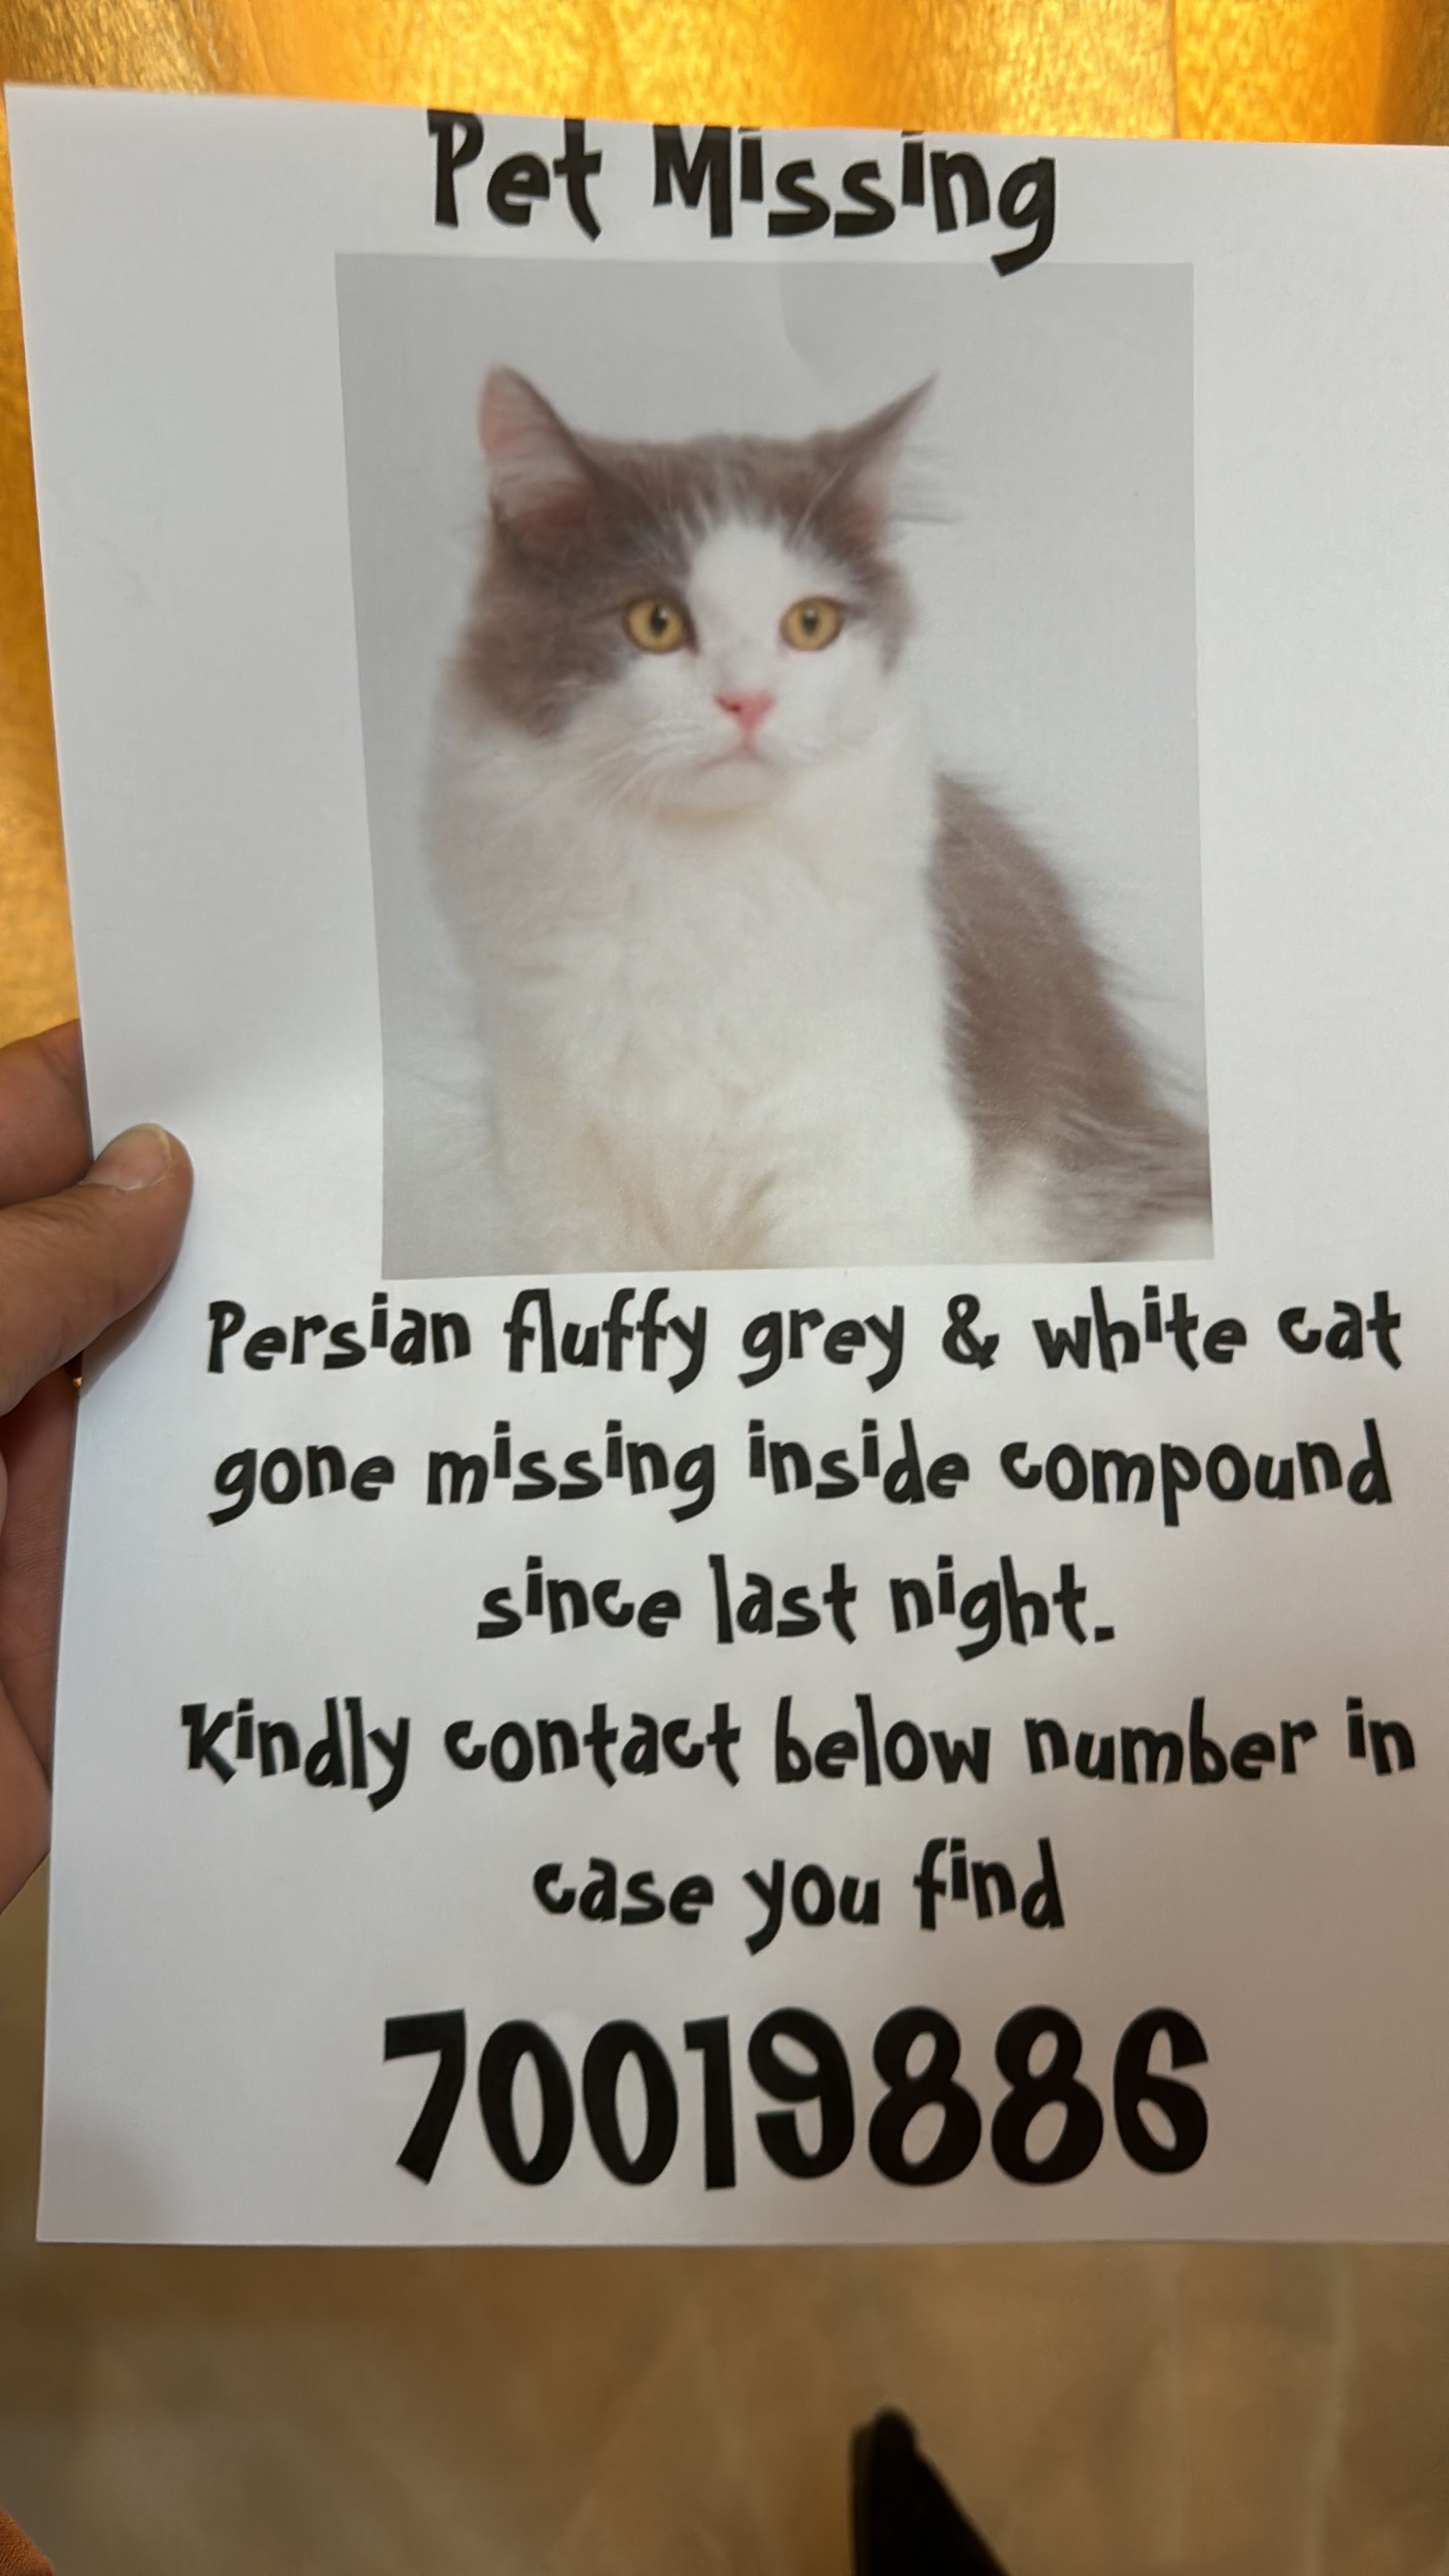 Pet Missing
Persian fluffy grey & white cat
gone missing inside compound
since last night.
Kindly contact below number in
case you find
70019886